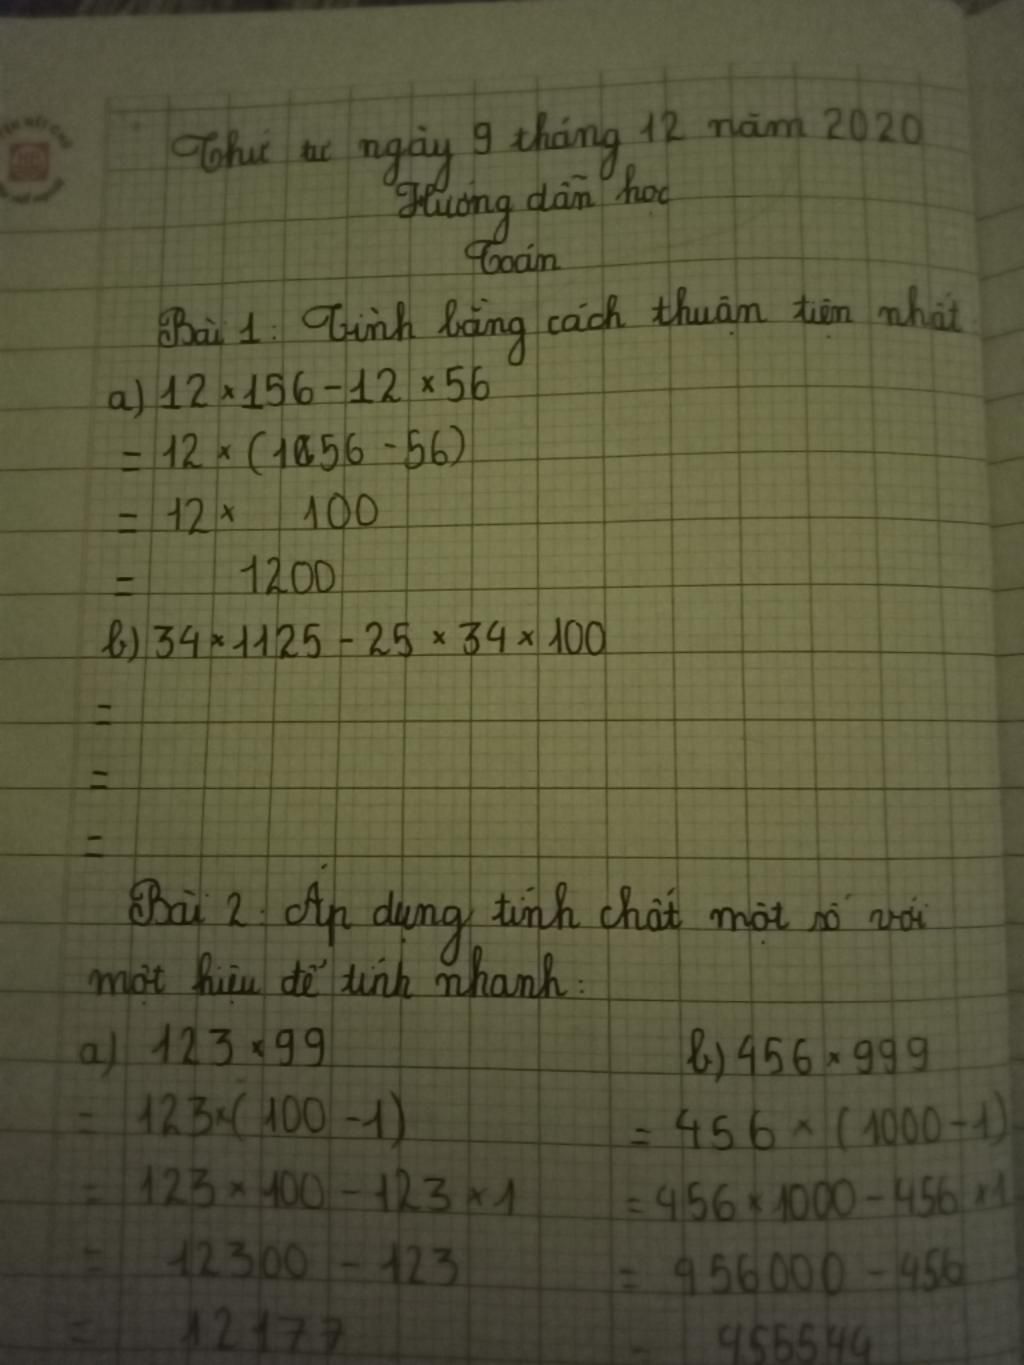 Thứ tư ngày 9 tháng 12 năm 2020
Hướng dẫn học
Toán
Bài 1: Tính bằng cách thuận tiện nhất
a) 12 × 156 - 12 × 56
= 12 × (156 - 56)
= 12 × 100
= 1200
b) 34 × 1125 - 25 × 34 × 100
=
=
=
Bài 2: Áp dụng tính chất một số với
một hiệu để tính nhanh:
a) 123 × 99 b) 456 × 999
= 123 × (100 - 1) = 456 × (1000 - 1)
= 123 × 100 - 123 × 1 = 456 × 1000 - 456 × 1
= 12300 - 123 = 456000 - 456
= 12177 = 455544